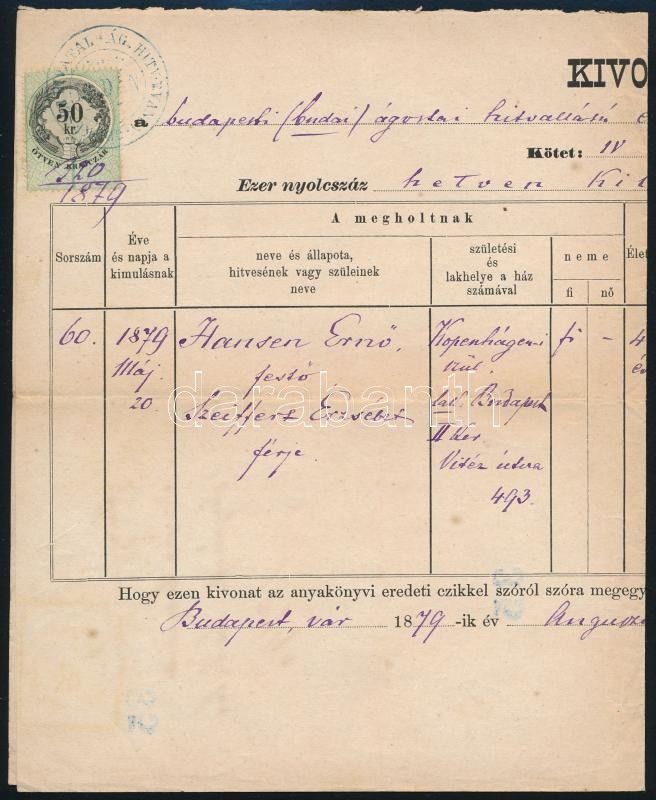 KIVO
50
kr.
ÖTVEN KRAJCZÁR
1879
a budapesti (budai) ágostai hitvallású e
Kötet: IV
Ezer nyolcszáz hetven Kil
A megholtnak
Sorszám
Éve
és napja a
kimulásnak
neve és állapota,
hitvesének vagy szüleinek
neve
születési
és
lakhelye a ház
számával
neme
fi
nő
Élet
60.
1879
Máj.
20.
Hansen Ernő,
festő,
Szeiffert Erzsébet
férje.
Kopenhágen-i
szül.
lak. Budapest
II ker.
Vitéz utcza
493.
fi
-
4
év
darabanth
Hogy ezen kivonat az anyakönyvi eredeti czikkel szóról szóra megegy
Budapest, vár 1879-ik év Augusz